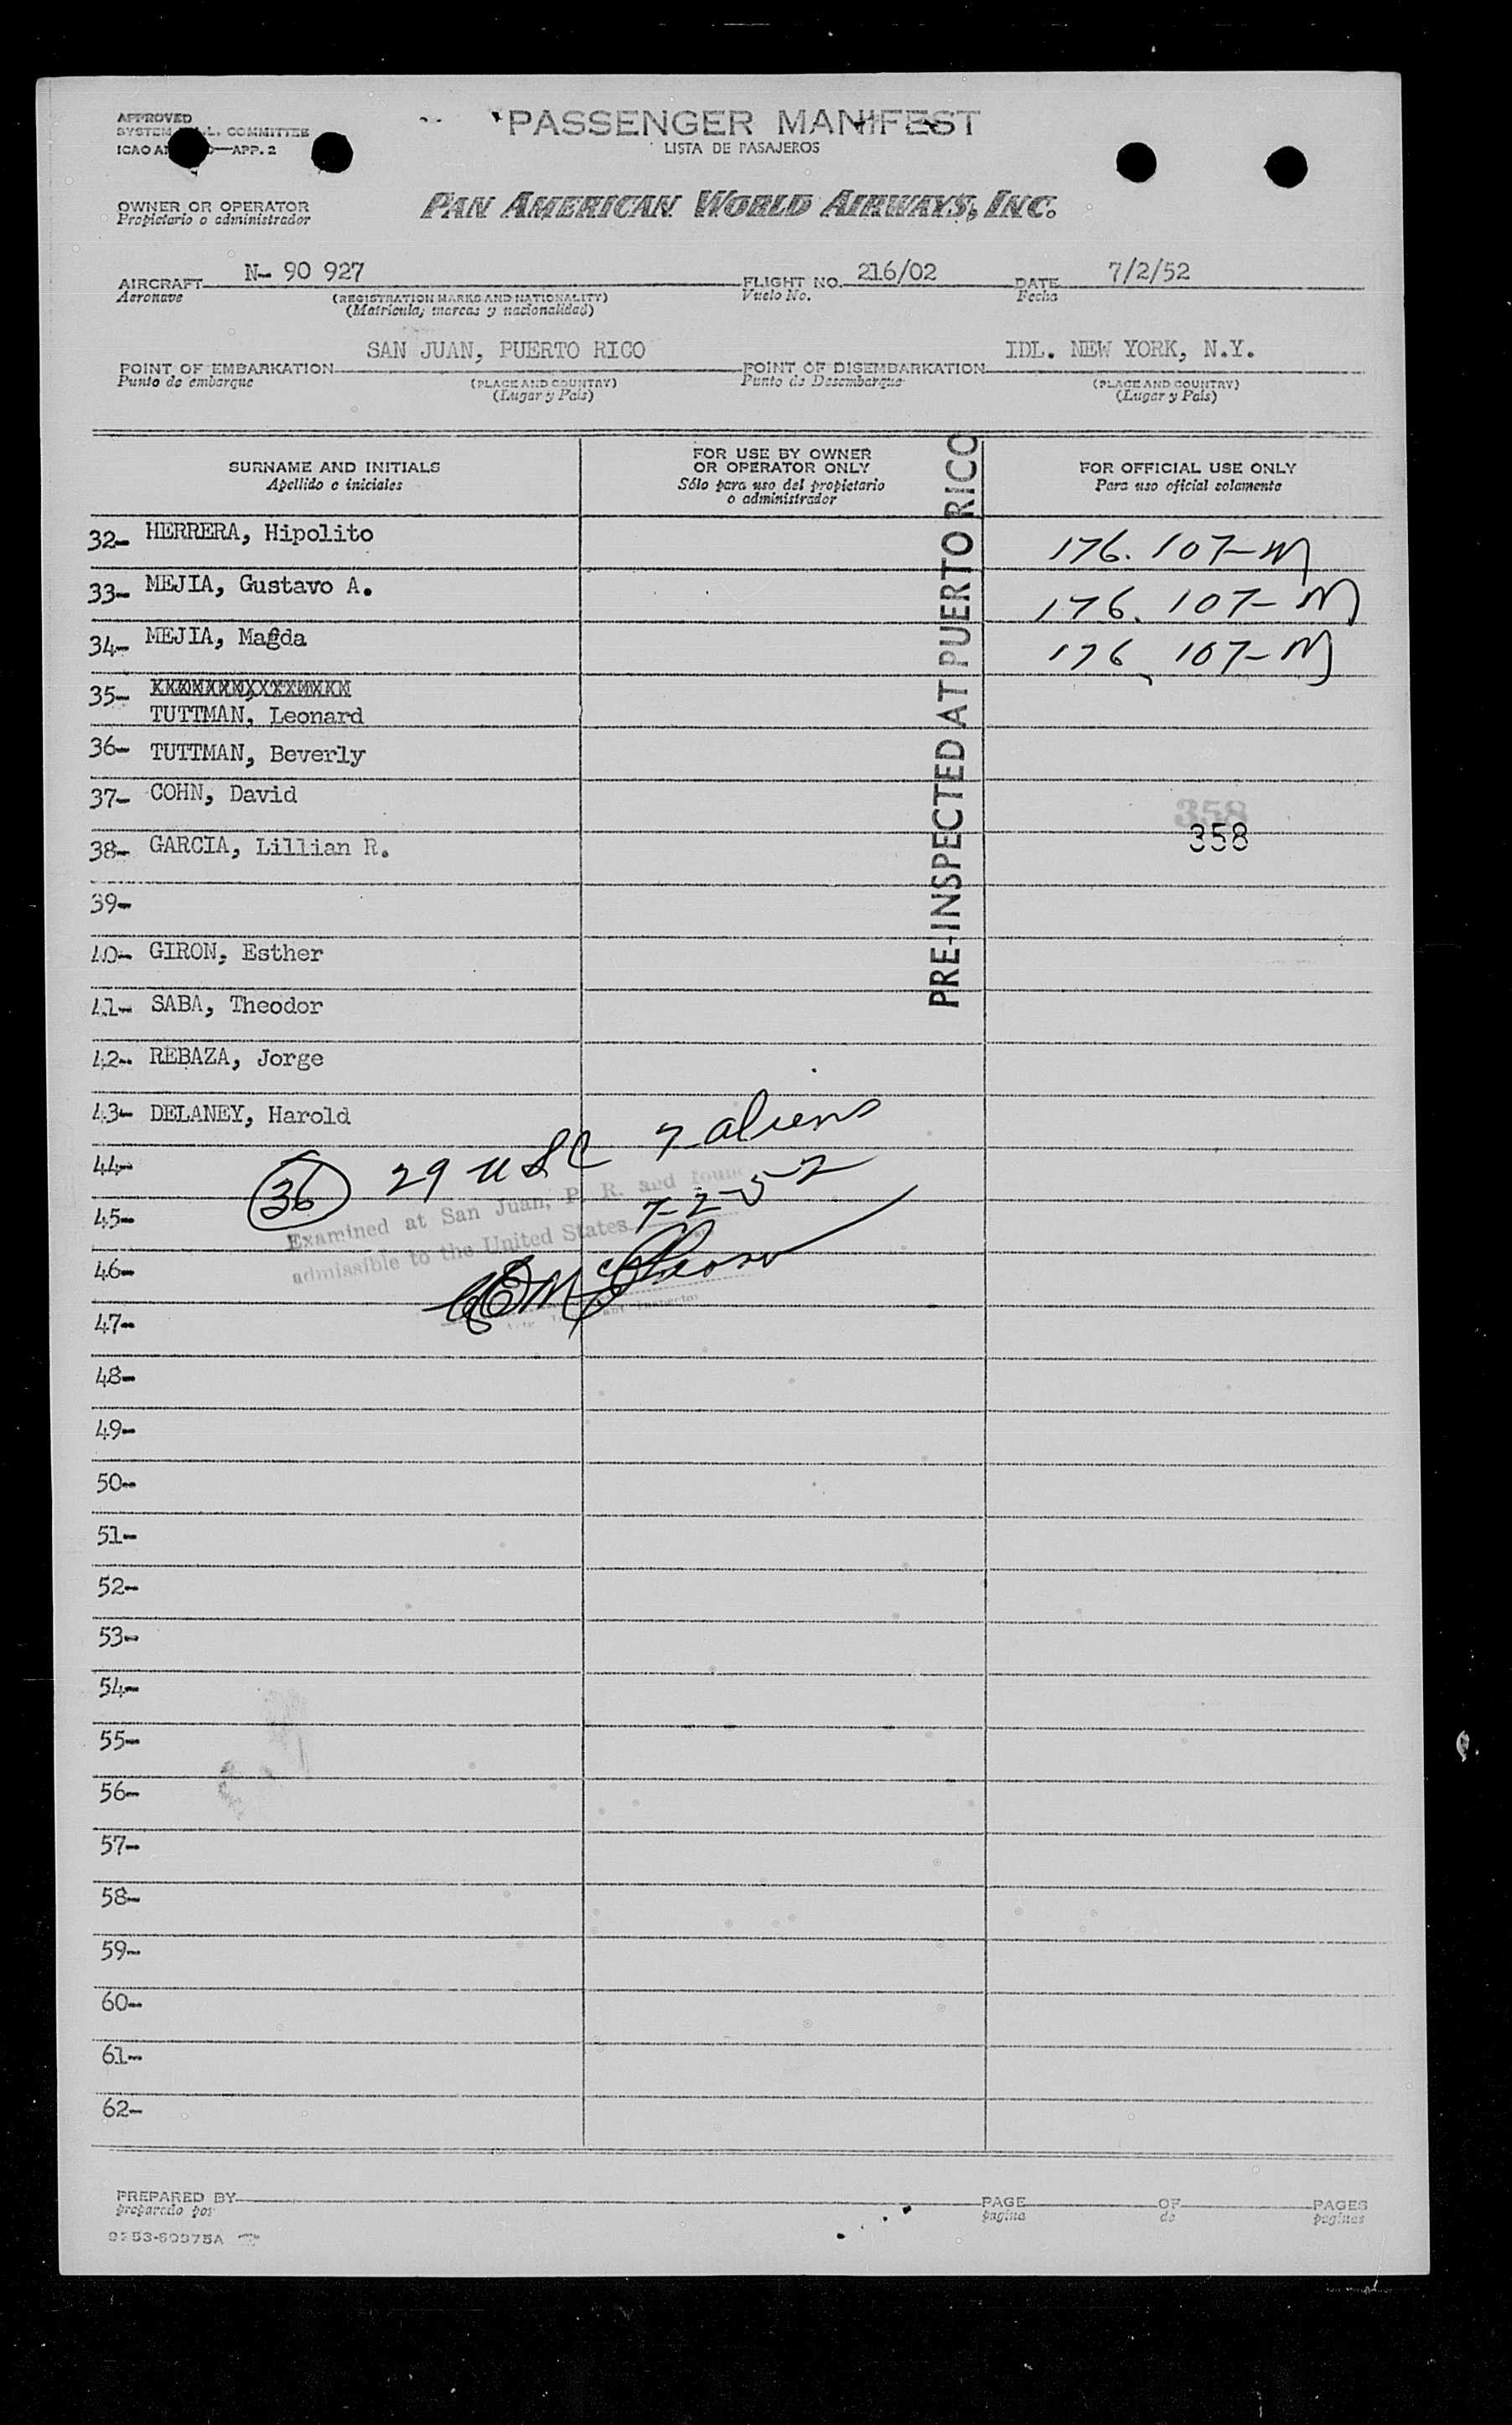 APPROVED
SYSTEM L. COMMITTEE
ICAO APP. 2
PASSENGER MANIFEST
LISTA DE PASAJEROS
OWNER OR OPERATOR
Propietario o administrador
PAN AMERICAN WORLD AIRWAYS, INC.
AIRCRAFT N- 90 927 FLIGHT NO. 216/02 DATE 7/2/52
Aeronave (REGISTRATION MARKS AND NATIONALITY) Vuelo No. Fecha
(Matricula, marcas y nacionalidad)
POINT OF EMBARKATION SAN JUAN, PUERTO RICO POINT OF DISEMBARKATION IDL. NEW YORK, N.Y.
Punto de embarque (PLACE AND COUNTRY) Punto de Desembarque (PLACE AND COUNTRY)
(Lugar y País) (Lugar y País)
SURNAME AND INITIALS
Apellido e iniciales
FOR USE BY OWNER
OR OPERATOR ONLY
Sólo para uso del propietario
o administrador
FOR OFFICIAL USE ONLY
Para uso oficial solamente
PRE-INSPECTED AT PUERTO RICO
32- HERRERA, Hipolito 176. 107-M
33- MEJIA, Gustavo A. 176. 107-M
34- MEJIA, Magda 176 107-M
35- TUTTMAN, Leonard
36- TUTTMAN, Beverly
37- COHN, David 358
38- GARCIA, Lillian R. 358
39-
40- GIRON, Esther
41- SABA, Theodor
42- REBAZA, Jorge
43- DELANEY, Harold
44-
36 29 USC 7 aliens
45-
Examined at San Juan, P. R. and found
7-2-52
admissible to the United States
46-
Inspector
47-
48-
49-
50-
51-
52-
53-
54-
55-
56-
57-
58-
59-
60-
61-
62-
PREPARED BY PAGE OF PAGES
preparado por pagina de paginas